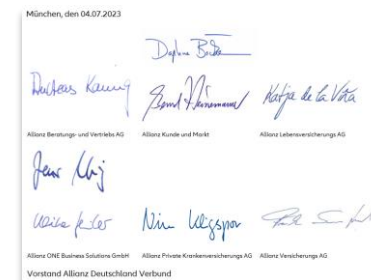 München, den 04.07.2023
Andreas Kanning
Bernd Heinemann
Katja de la Viña
Allianz Beratungs- und Vertriebs AG
Allianz Kunde und Markt
Allianz Lebensversicherungs AG
Nina Klingspor
Allianz ONE Business Solutions GmbH
Allianz Private Krankenversicherungs AG
Allianz Versicherungs AG
Vorstand Allianz Deutschland Verbund